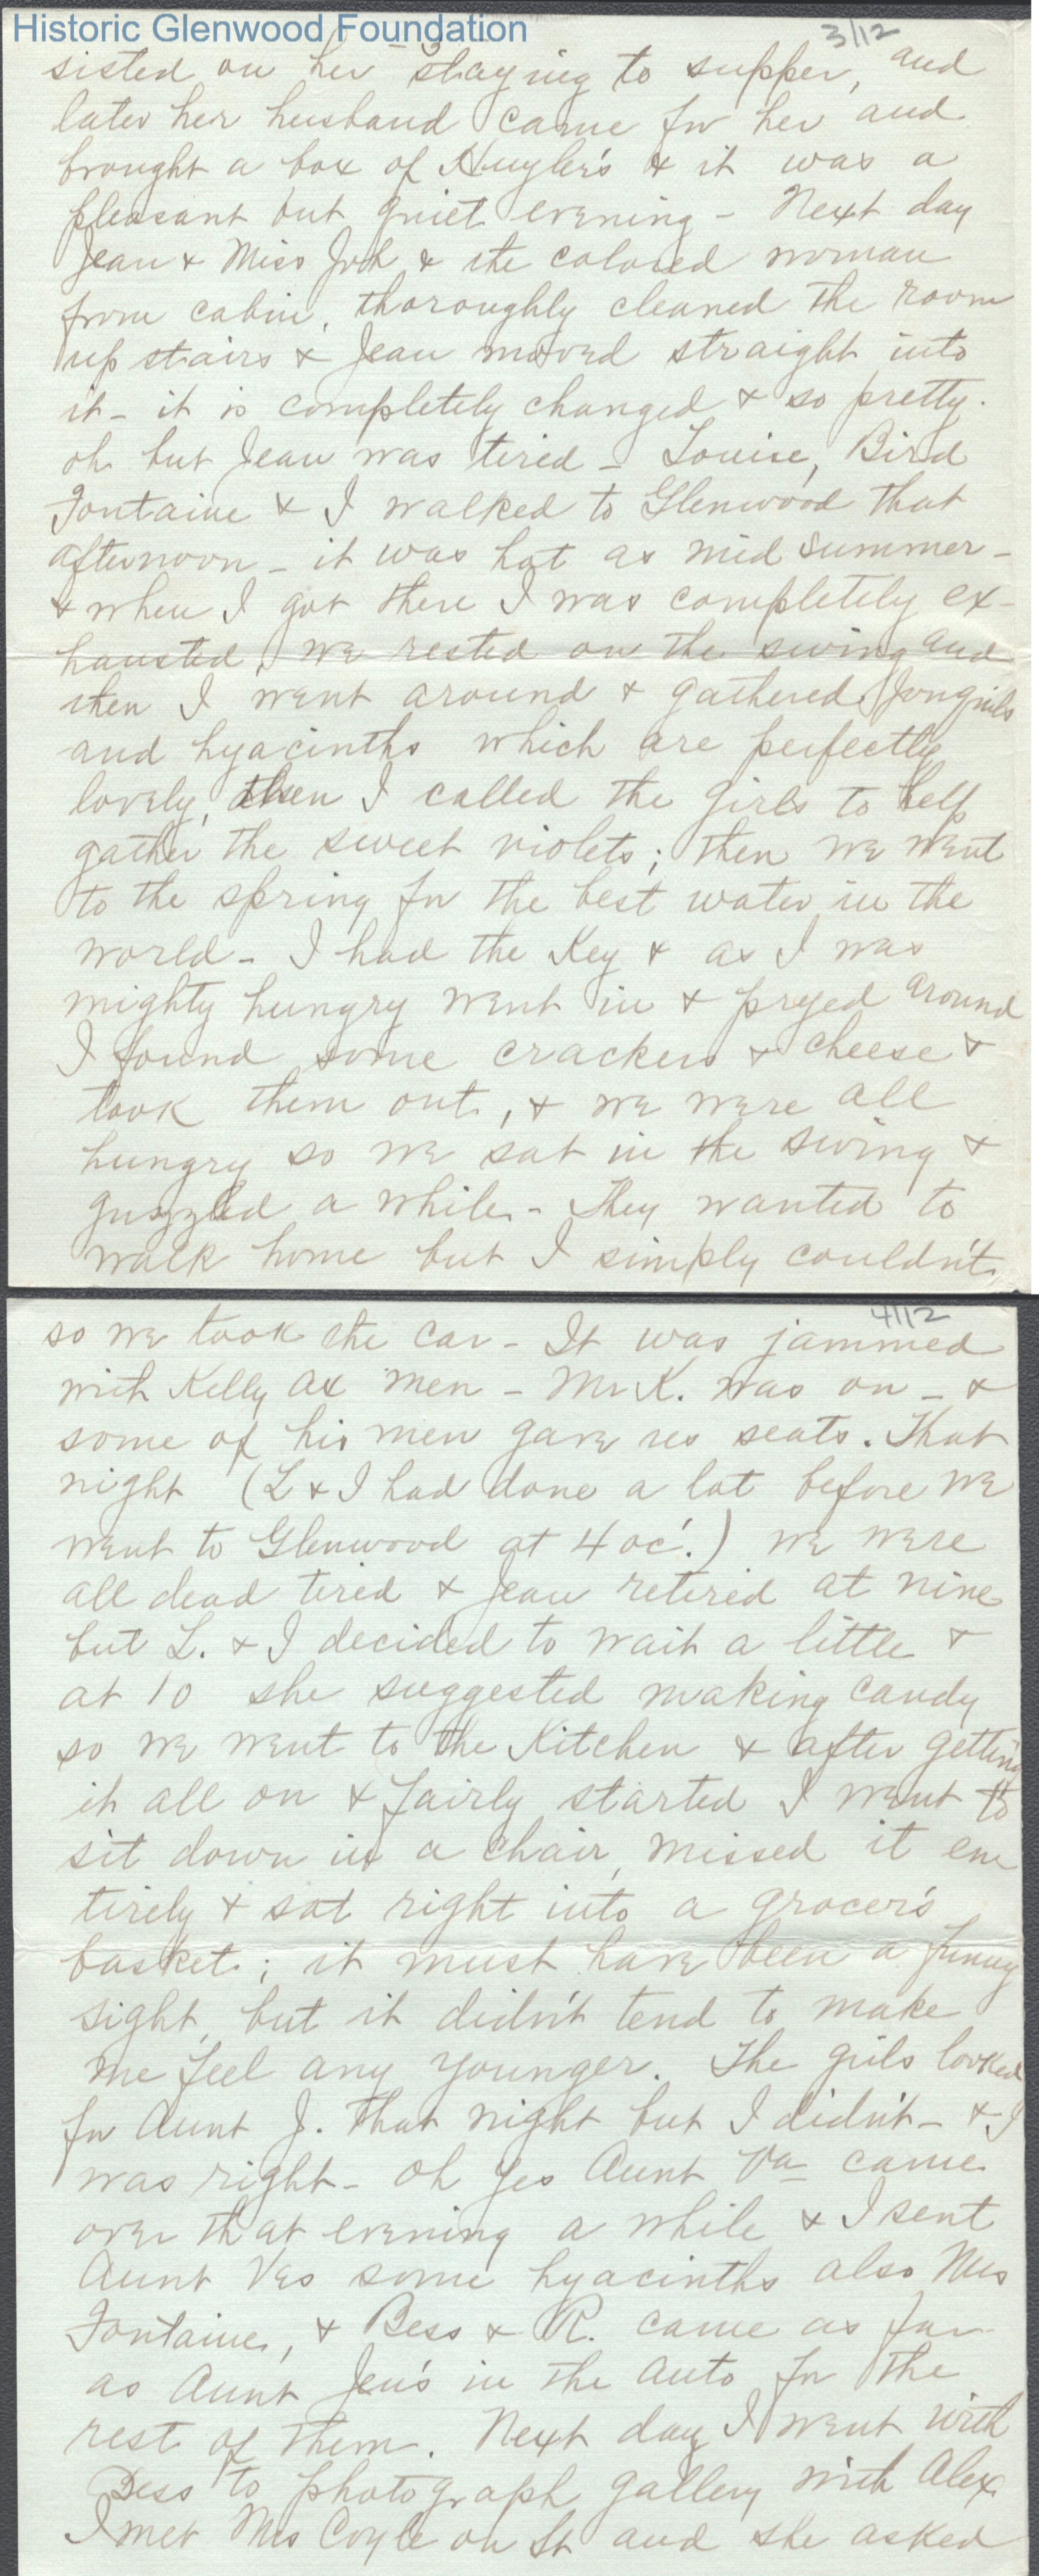 Historic Glenwood Foundation
3/12
sisted on her staying to supper, and
later her husband came for her and
brought a box of Huyler's & it was a
pleasant but quiet evening - Next day
Jean & Miss Joh & the colored woman
from cabin, thoroughly cleaned the room
up stairs & Jean moved straight into
it - it is completely changed & so pretty.
oh but Jean was tired - Louise, Bird
Fontaine & I walked to Glenwood that
afternoon - it was hot as mid summer -
& when I got there I was completely ex-
hausted, we rested on the swing and
then I went around & gathered Jonquils
and hyacinths which are perfectly
lovely, then I called the girls to help
gather the sweet violets; then we went
to the spring for the best water in the
world - I had the Key & as I was
mighty hungry went in & pryed around
I found some crackers & cheese &
took them out, & we were all
hungry so we sat in the swing &
guzzled a while - They wanted to
walk home but I simply couldn't
4/12
so we took the car - It was jammed
with Kelly Ax men - Mr K. was on - &
some of his men gave us seats. That
night (L & I had done a lot before we
went to Glenwood at 4 oc'.) we were
all dead tired & Jean retired at nine
but L. & I decided to wait a little &
at 10 she suggested making candy
so we went to the Kitchen & after getting
it all on & fairly started I went to
sit down in a chair, missed it en
tirely & sat right into a grocer's
basket; it must have been a funny
sight, but it didn't tend to make
me feel any younger. The girls looked
for Aunt J. that night but I didn't - & I
was right - Oh yes Aunt Va came
over that evening a while & I sent
Aunt Ves some hyacinths also Mrs
Fontaine, & Bess & R. came as far
as Aunt Jen's in the auto for the
rest of them. Next day I went with
Bess to photograph gallery with Alex
I met Mrs Coyle on St and she asked